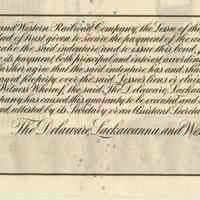 and Western Railroad Company, the Lessee of the
ed of Trust given to secure the payment of the
make the said indenture and to issue this bond,
its payment, both principal and interest accordin
further agree that the said indenture has and sha
aged property over the said Lessee's lien or claim
Witness Whereof, the said, The Delaware, Lacka
mpany has caused this guaranty to be executed and
nd attested by its Secretary or an Assistant Secreta
The Delaware, Lackawanna and Wes